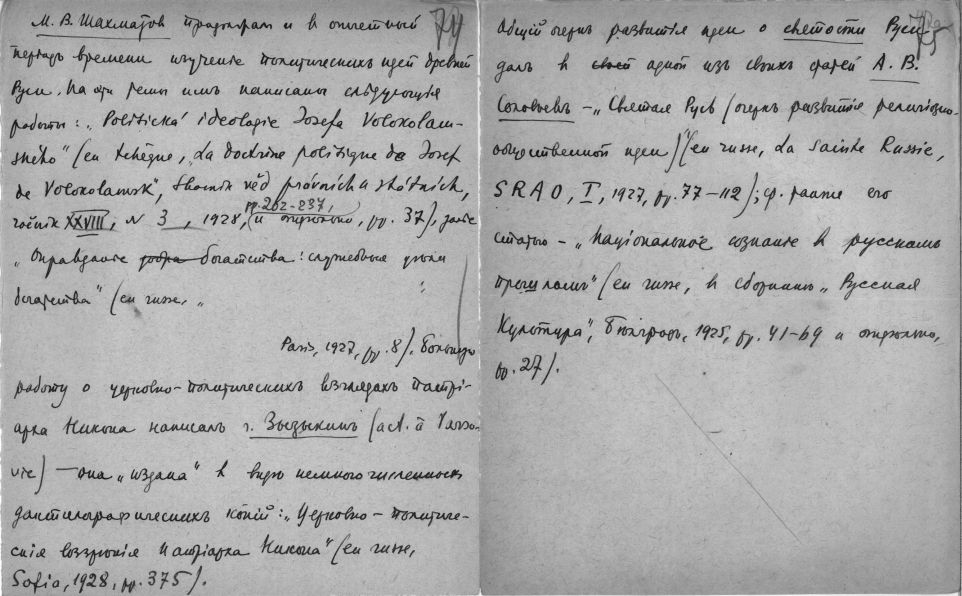 74
М. В. Шахматов продолжал и в отчетный
період времени изученіе политических идей древней
Руси. На эти темы им написаны слѣдующія
работы: „Politická ideologie Josefa Volokolam-
ského" (en tchèque, „La doctrine politique de Josef
de Volokolamsk", Sborník věd právních a státních,
ročník XXVIII, N 3, 1928, pp. 202-237,
(и отдѣльно, pp. 37), далѣе
„Оправданіе добра богатства: служебныя
богатства" (en russe, „ "
Paris, 1927, pp. 8). Большую
работу о церковно-политических взглядах патрі-
арха Никона написалъ г. Зызыкинъ (act. à Varso-
vie) — она „издана" в видѣ немногочисленныхъ
дактилографическихъ копій: „Церковно-политиче-
скія воззрѣнія Патріарха Никона" (en russe,
Sofia, 1928, pp. 375).
75
Общій очерк развитія идеи о святости Руси
далъ в своей одной изъ своихъ статей А. В.
Соловьевъ – „Святая Русь (очерк развитія религіозно-
общественной идеи)" (en russe, La Sainte Russie,
SRAO, I, 1927, pp. 77–112); ср. также его
статью – „Національное сознаніе в русскомъ
прошломъ" (en russe, в сборникѣ „Русская
Культура", Бѣлградъ, 1925, pp. 41–69 и отдѣльно,
pp. 27).